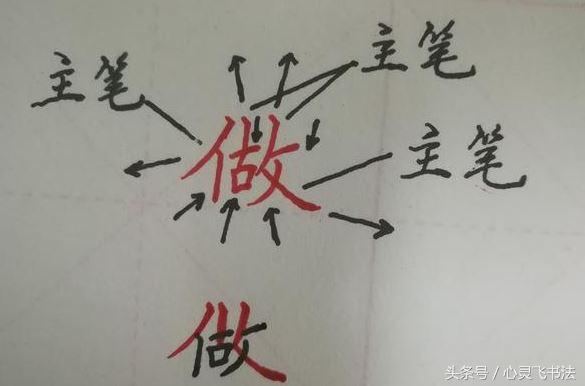 主笔
主笔
做
主笔
做
头条号／心灵飞书法